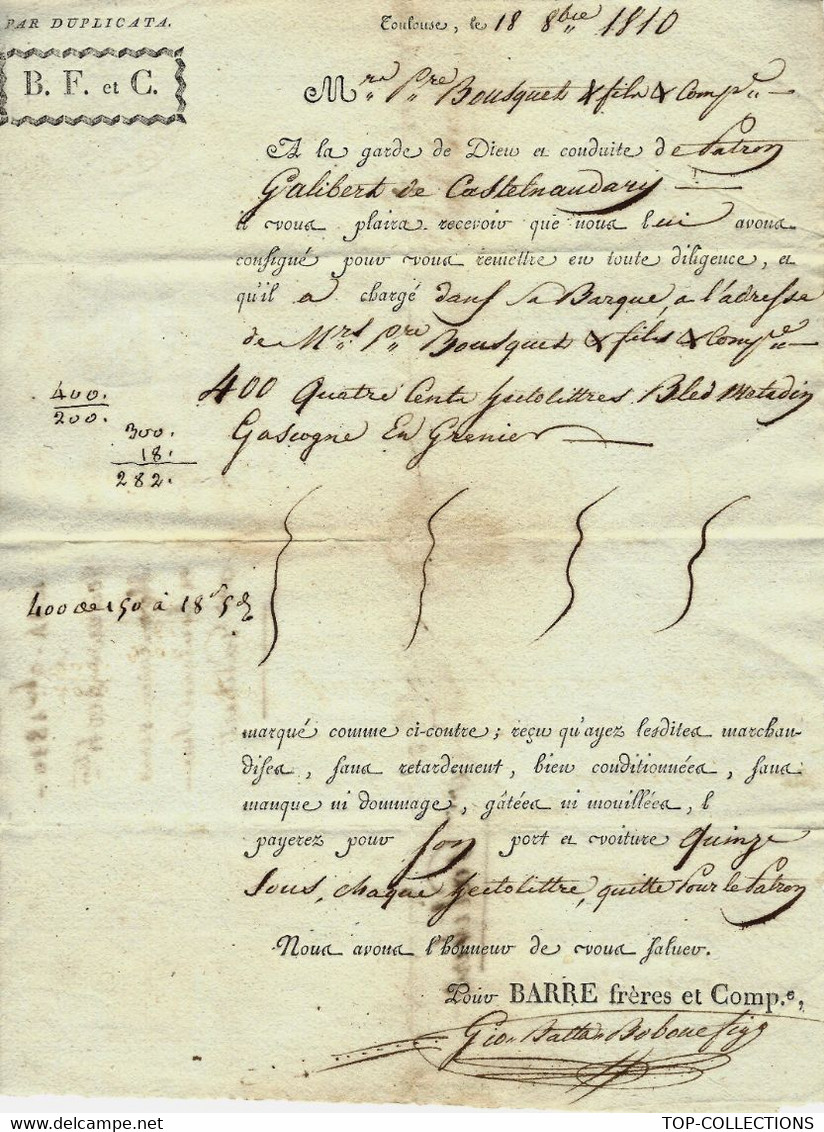 PAR DUPLICATA.
Toulouse, le 18 8bre 1810
B. F. et C.
Mrs Pre Bousquet & fils & Compe
A la garde de Dieu et conduite de Patron
Galibert de Castelnaudary
il vous plaira recevoir que nous lui avons
consigné pour vous remettre en toute diligence, et
qu'il a chargé dans sa Barque, a l'adresse
de Mrs Pre Bousquet & fils & Compe
400 Quatre Cents hectolittres Bled Mitadin
Gascogne En Grenier
400.
200.
300.
18.
282.
400 de 150 à 18 5
marqué comme ci-contre; reçu qu'ayez lesdites marchan-
dises, sans retardement, bien conditionnées, sans
manque ni dommage, gâtées ni mouillées, l
payerez pour son port et voiture Quinze
Sous, chaque hectolittre, quitte Pour le Patron
Nous avons l'honneur de vous saluer.
Pour BARRE frères et Comp.e,
Gio Batta
TOP-COLLECTIONS